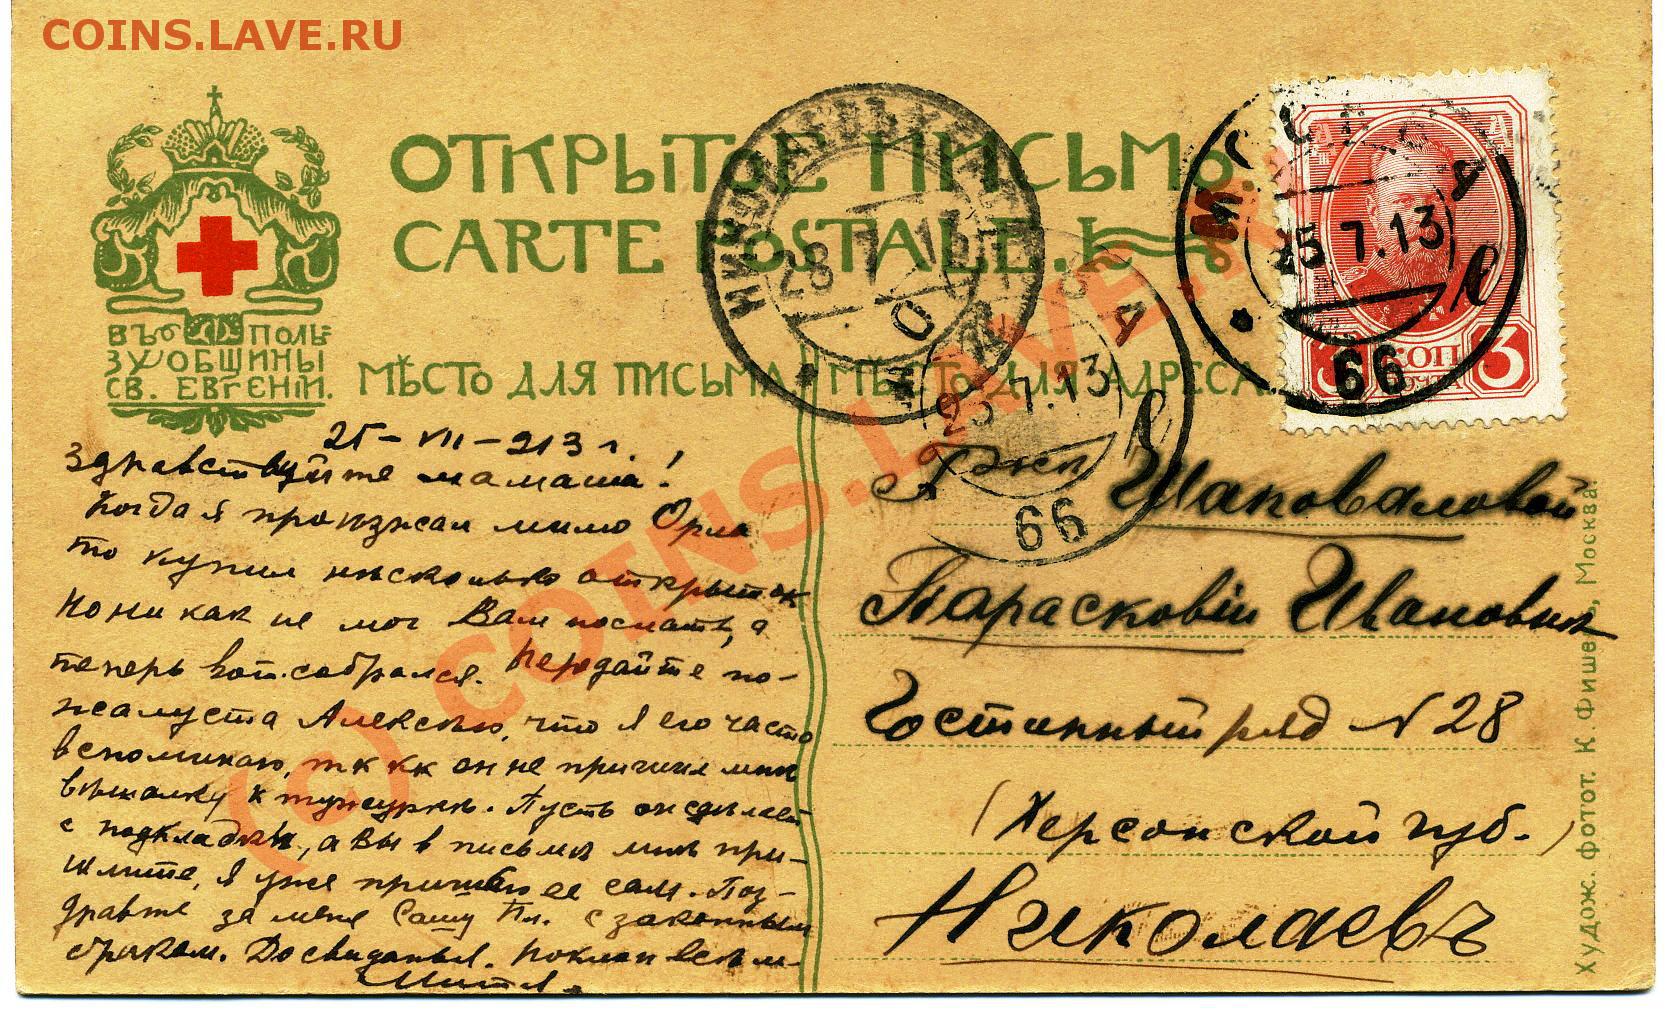 COINS.LAVE.RU
ОТКРЫТОЕ ПИСЬМО.
CARTE POSTALE.
ВЪ ПОЛЬ-
ЗУ ОБЩИНЫ
СВ. ЕВГЕНІИ.
МѢСТО ДЛЯ ПИСЬМА
МѢСТО ДЛЯ АДРЕСА
НИКОЛАЕВЪ ХЕРС
28 7 13
МОСКВА
25 7.13
66
МОСКВА
25.7.13
66
3 КОП 3
ПОЧТА
25-VII-913 г.
Здравствуйте мамаша!
Когда я проезжал мимо Орла
то купил нѣсколько открыток
но никак не мог Вам послать, а
теперь вот собрался. Передайте по-
жалуста Алексѣю, что я его часто
вспоминаю, тк кк он не пришил мнѣ
вѣшалку к тужуркѣ. Пусть он сдѣлает
с подкладки, а Вы в письмѣ мнѣ при-
шлите, я уже пришью ее сам. Поз-
дравте за меня Сашу Пл. с законным
браком. Досвиданья. Поклон всѣм
Митя.
Гжѣ Шаповаловой
Парасковіи Ивановнѣ
Гостинный ряд N 28
(Херсонской губ.)
Николаевъ
Худож. фотот. К. Фишеръ, Москва.
(c) COINS.LAVE.RU